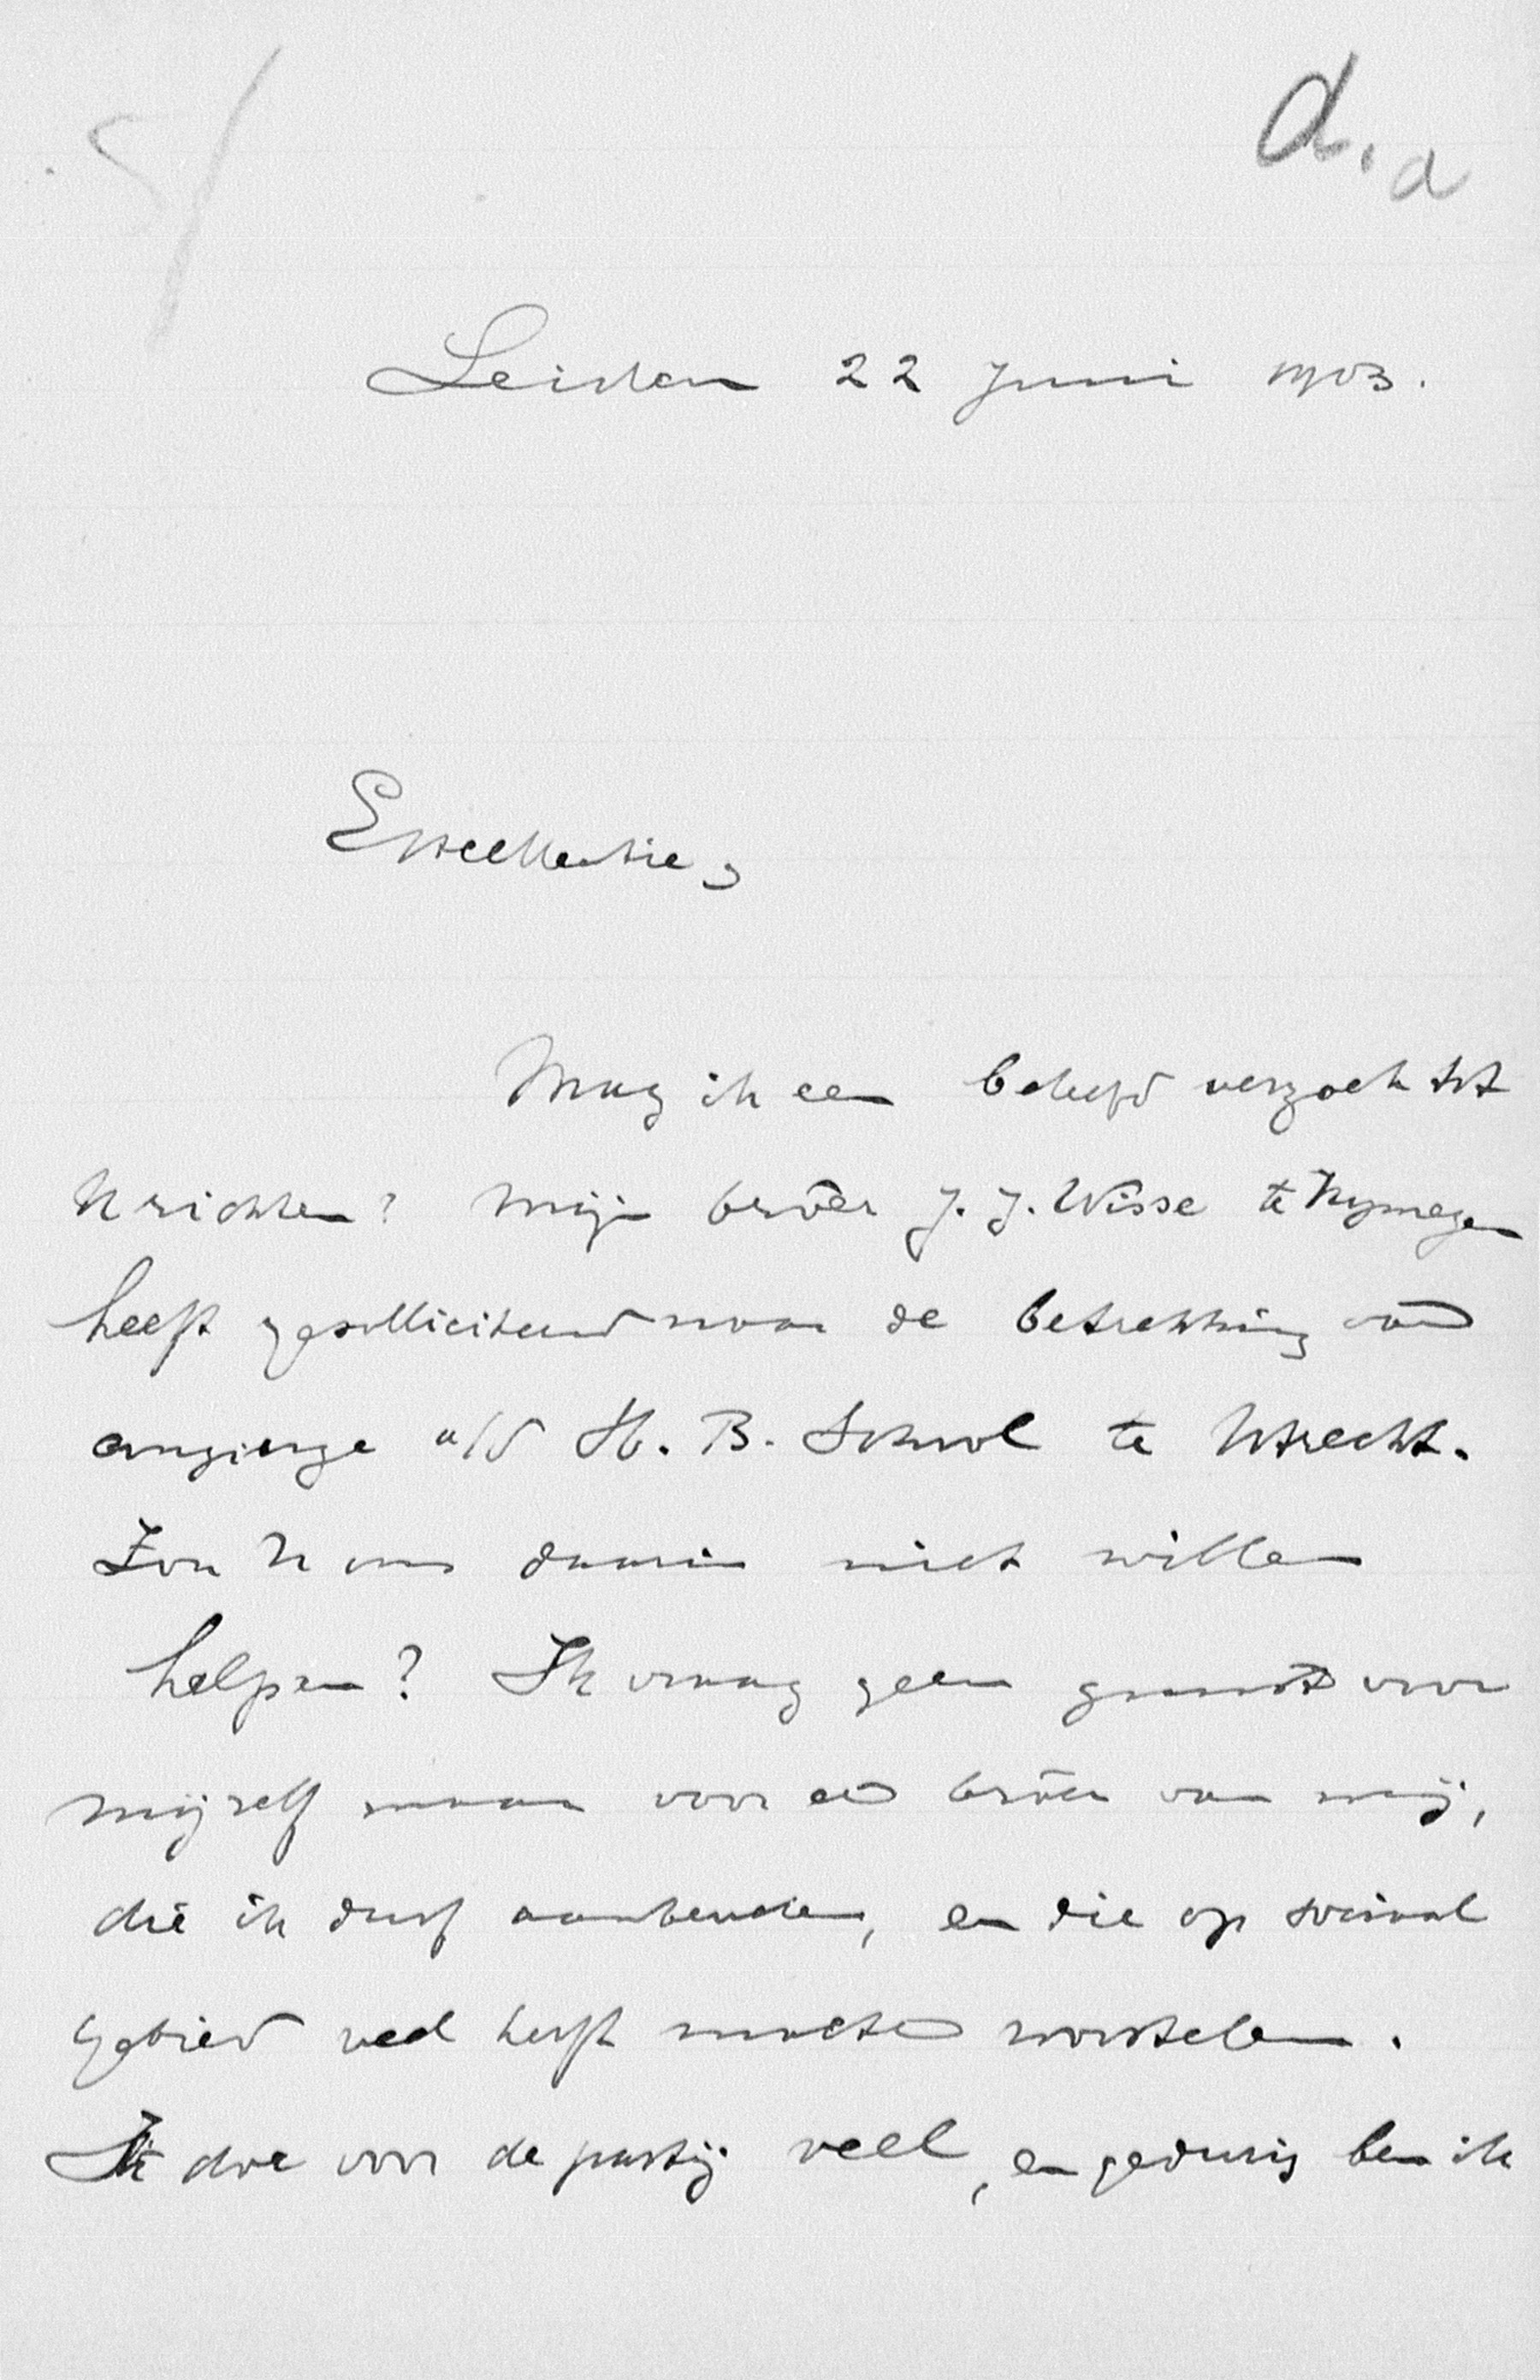 d.a
Leiden 22 Juni 1903.
Excellentie,
Mag ik een beleefd verzoek tot
U richten? Mijn broêr J. J. Wisse te Nymegen
heeft gesolliciteerd naar de betrekking van
conciërge a/d H. B. School te Utrecht.
Zou U ons daarin niet willen
helpen? Ik vraag geen gunst voor
mijzelf maar voor een broêr van mij,
die ik durf aanbevelen, en die op sociaal
gebied veel heeft moeten worstelen.
Ik doe voor de partij veel, en gedurig ben ik